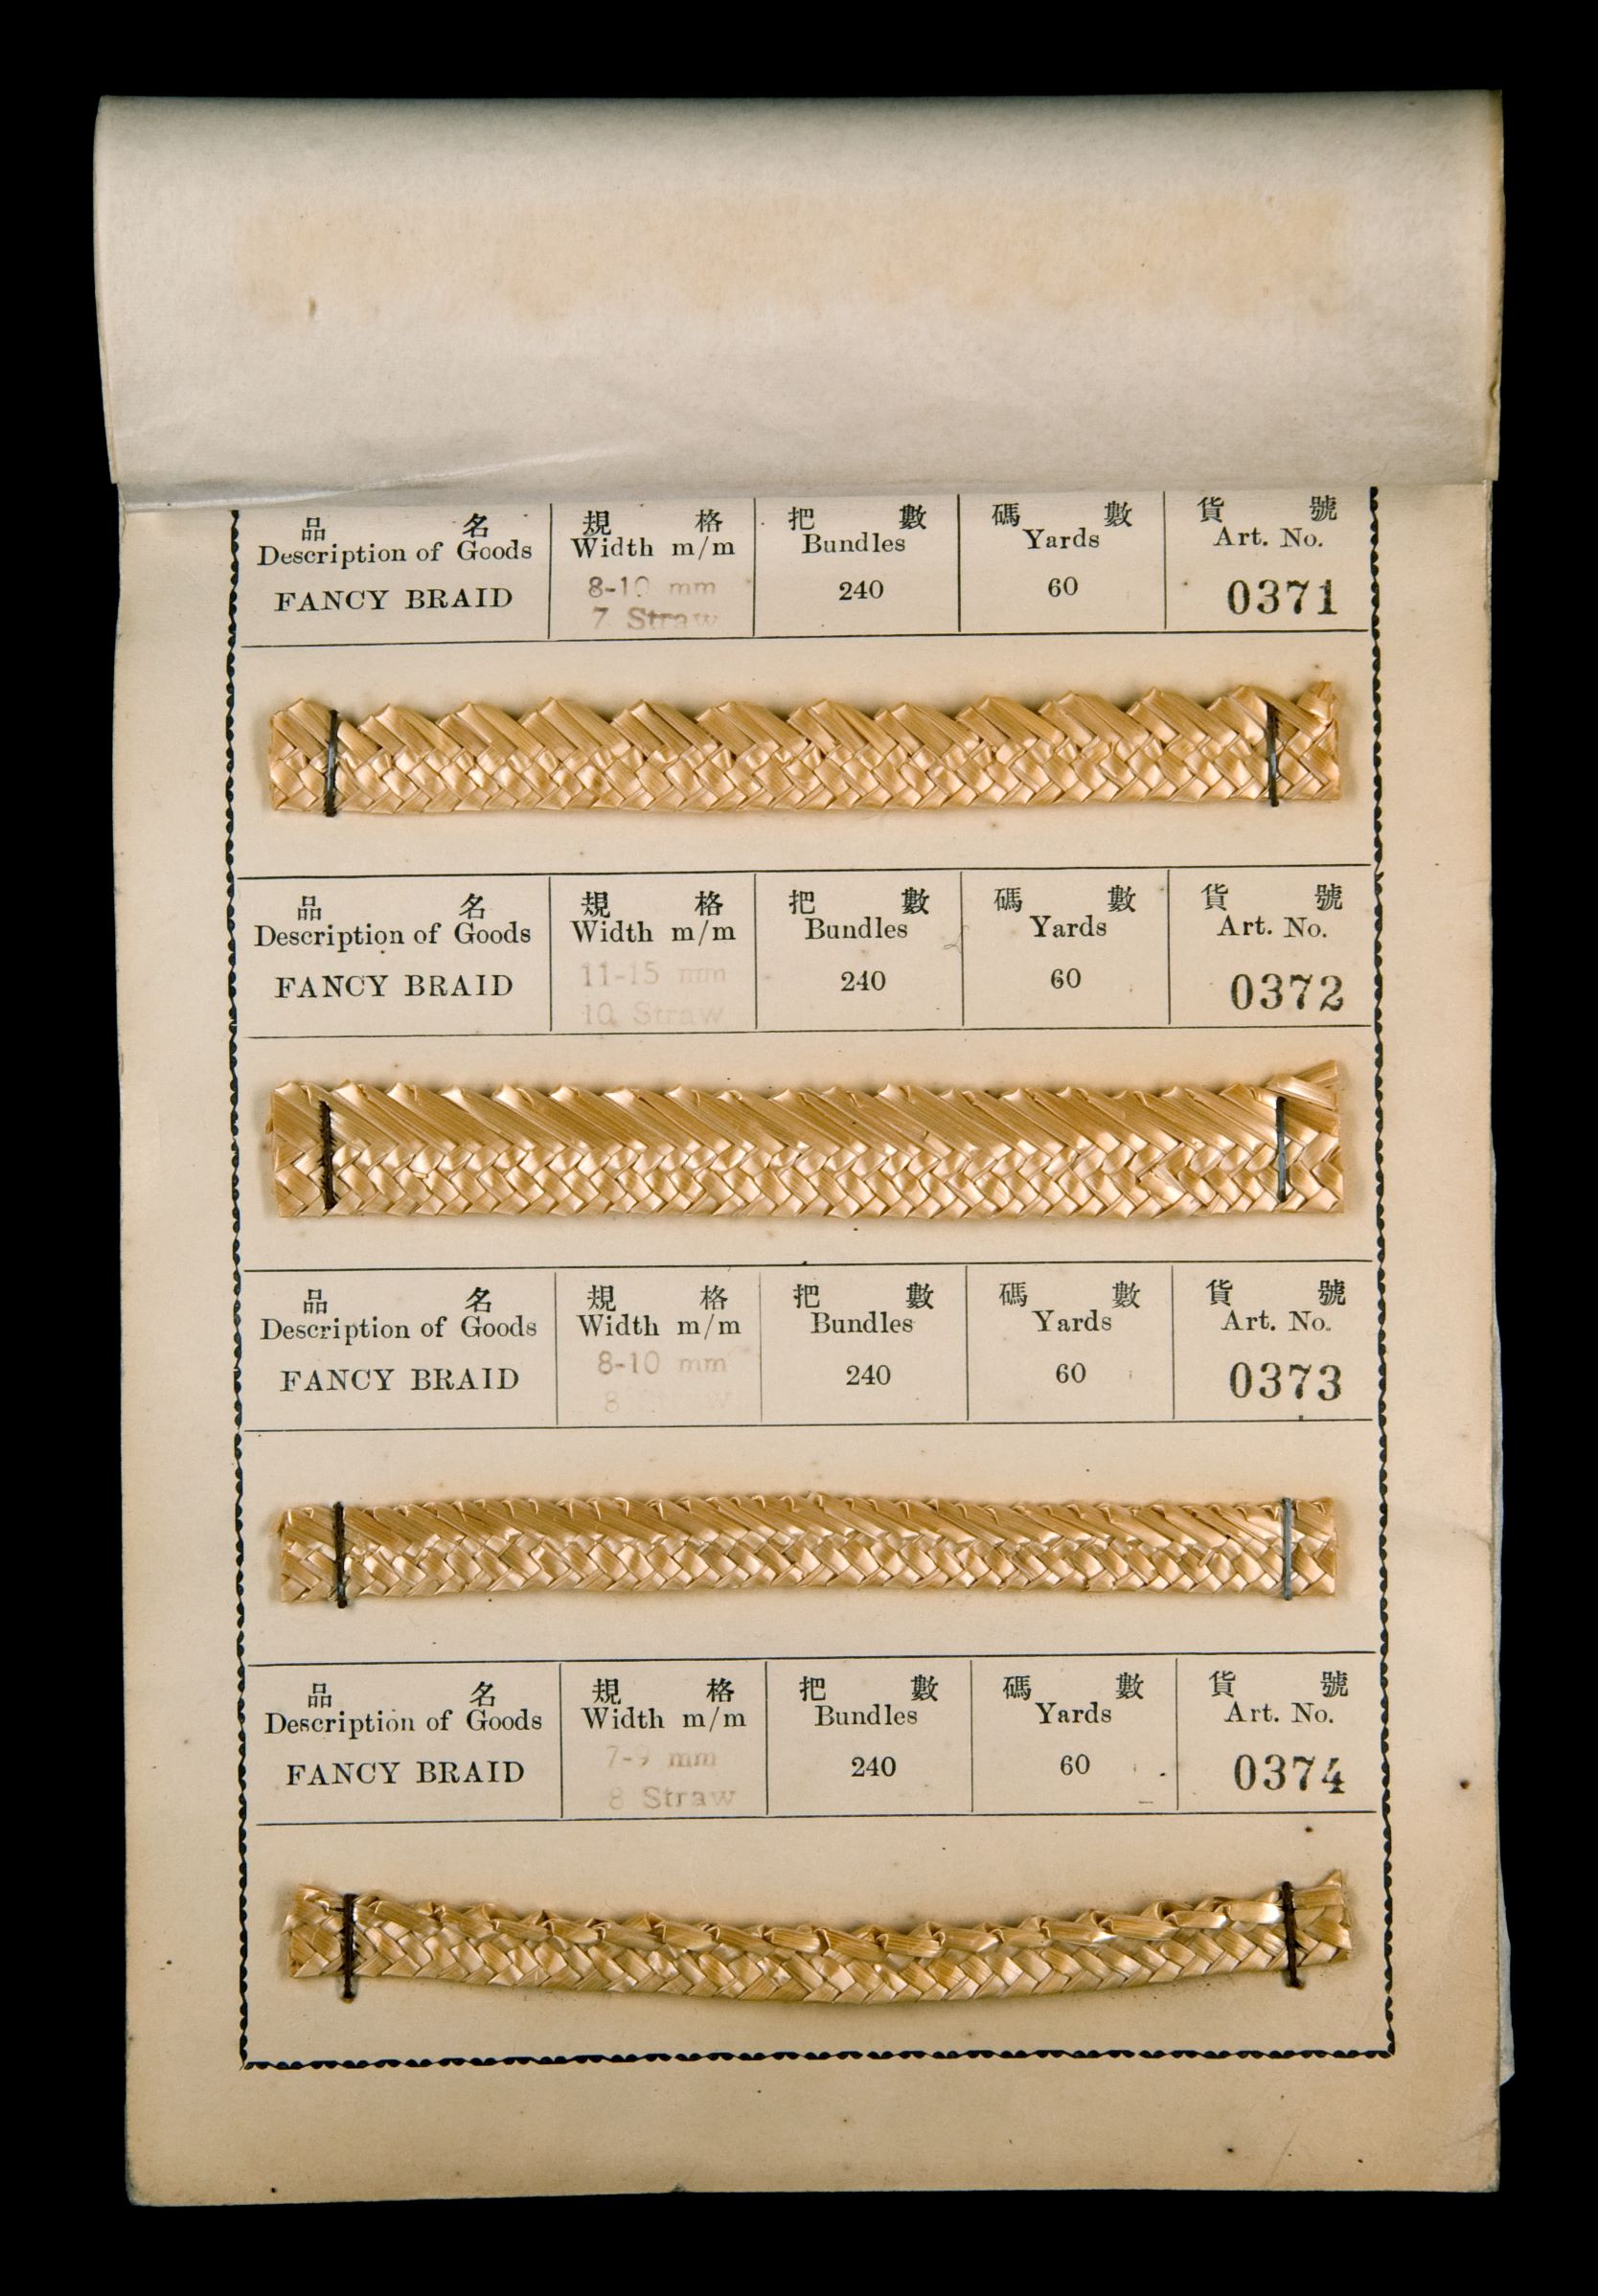 品名 規格 把數 碼數 貨號
Description of Goods Width m/m Bundles Yards Art. No.
FANCY BRAID 8-10 mm 240 60 0371
7 Straw
品名 規格 把數 碼數 貨號
Description of Goods Width m/m Bundles Yards Art. No.
FANCY BRAID 11-15 mm 240 60 0372
10 Straw
品名 規格 把數 碼數 貨號
Description of Goods Width m/m Bundles Yards Art. No.
FANCY BRAID 8-10 mm 240 60 0373
8
品名 規格 把數 碼數 貨號
Description of Goods Width m/m Bundles Yards Art. No.
FANCY BRAID 7-9 mm 240 60 0374
8 Straw